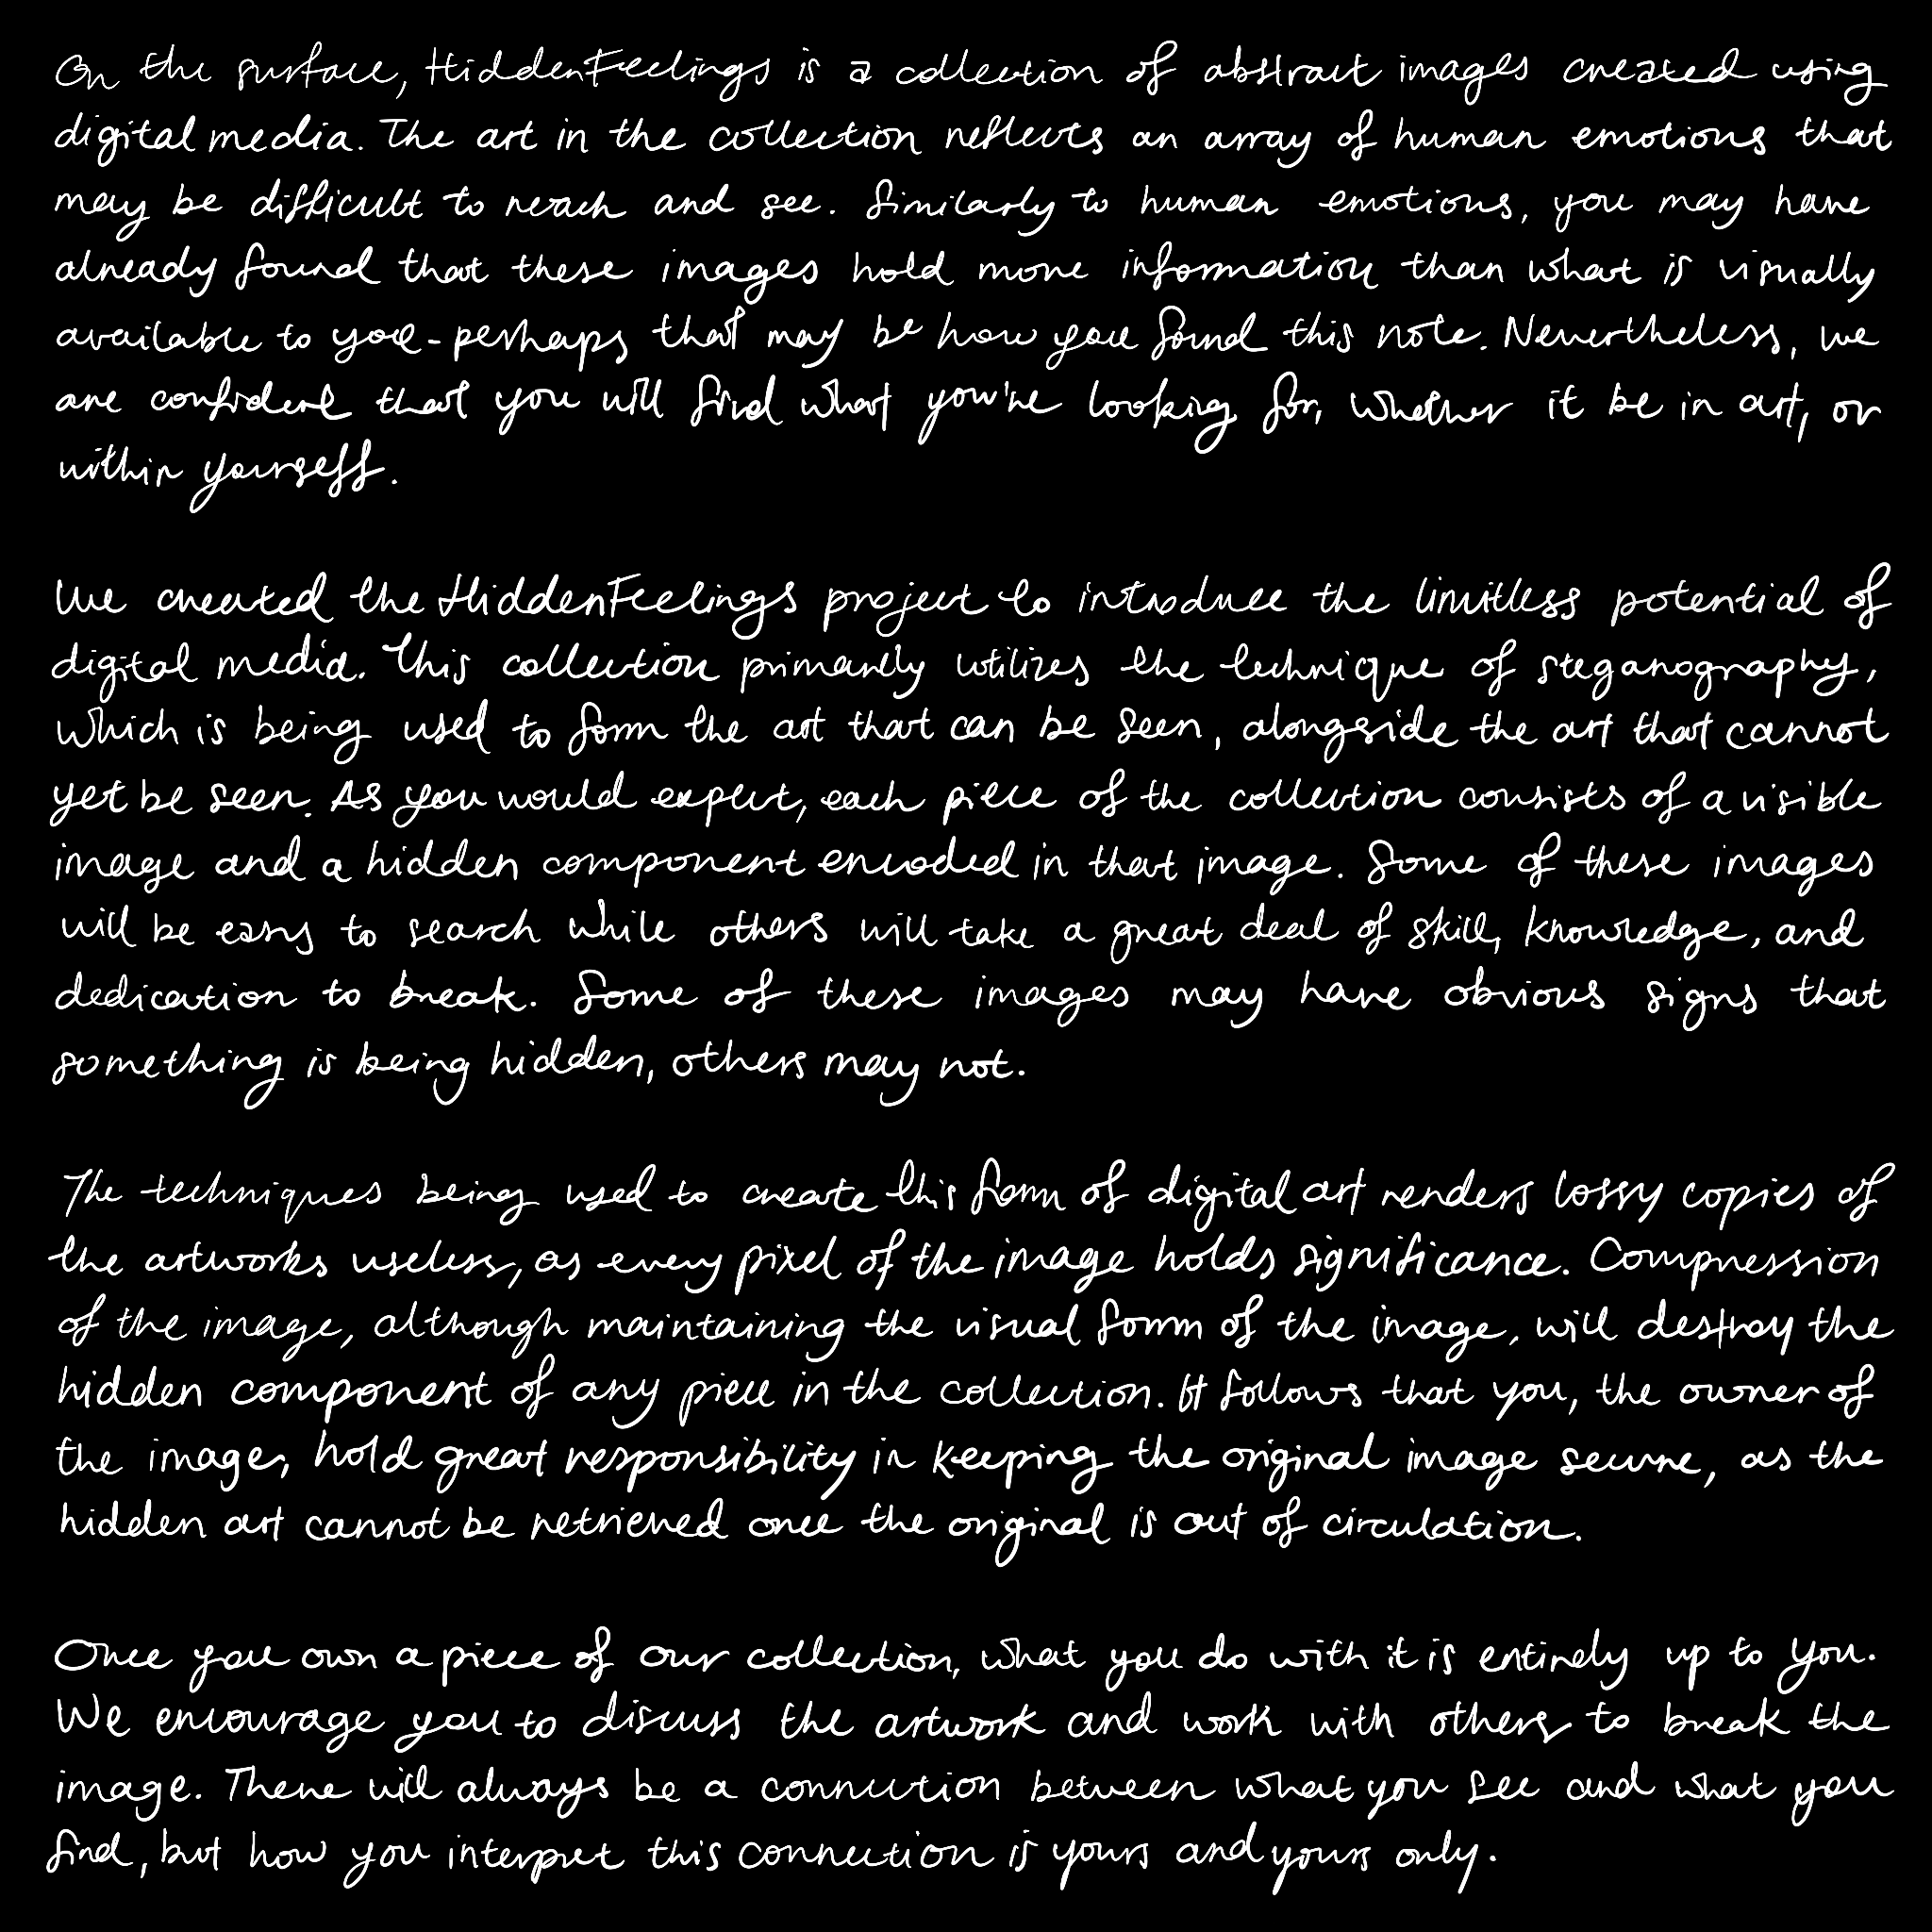 On the surface, HiddenFeelings is a collection of abstract images created using
digital media. The art in the collection reflects an array of human emotions that
may be difficult to reach and see. Similarly to human emotions, you may have
already found that these images hold more information than what is visually
available to you - perhaps that may be how you found this note. Nevertheless, we
are confident that you will find what you're looking for, whether it be in art, or
within yourself.
We created the HiddenFeelings project to introduce the limitless potential of
digital media. This collection primarily utilizes the technique of steganography,
which is being used to form the art that can be seen, alongside the art that cannot
yet be seen. As you would expect, each piece of the collection consists of a visible
image and a hidden component encoded in that image. Some of these images
will be easy to search while others will take a great deal of skill, knowledge, and
dedication to break. Some of these images may have obvious signs that
something is being hidden, others may not.
The techniques being used to create this form of digital art renders lossy copies of
the artworks useless, as every pixel of the image holds significance. Compression
of the image, although maintaining the visual form of the image, will destroy the
hidden component of any piece in the collection. It follows that you, the owner of
the image, hold great responsibility in keeping the original image secure, as the
hidden art cannot be retrieved once the original is out of circulation.
Once you own a piece of our collection, what you do with it is entirely up to you.
We encourage you to discuss the artwork and work with others to break the
image. There will always be a connection between what you see and what you
find, but how you interpret this connection is yours and yours only.